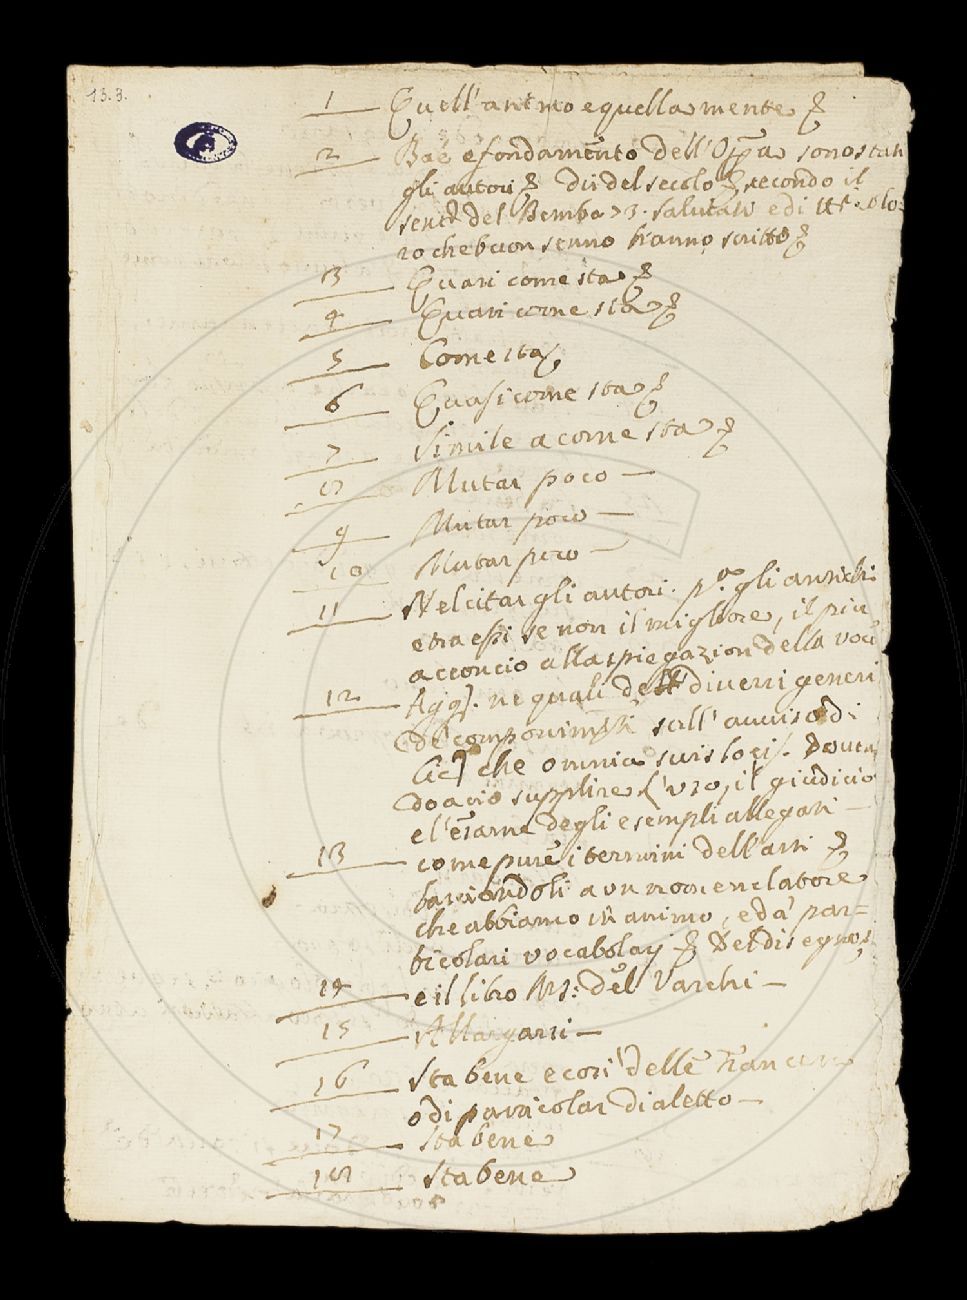 13.3.
1 Quell'animo e quella mente &
2 Base e fondamento dell'Opera sono stati
gli autori & del secolo & secondo il
sent.° del Bembo 3. Salviati e di
ro che buon senno hanno scritto &
3 Quasi come sta &
4 Quasi come sta &
5 Come sta
6 Quasi come sta &
7 Simile a come sta &
8 Mutar poco —
9 Mutar poco —
10 Mutar poco —
11 Nel citar gli autori. p.° gli antichi
e tra essi se non il migliore, il più
acconcio alla spiegazion della voce
12 Agg. ne quali de diversi generi
de' componim.ti sull'avviso di
Cic. che omnia suis locis.
do a ciò supplire l'uso, il giudicio
e l'esame degli esempli allegati —
13 come pure i termini dell'arti &
lasciandoli a un nomenclatore
che abbiamo in animo, e da' par=
ticolari vocabolarj & Del disegno &
14 e il libro Ms: del Varchi —
15 Allargarsi —
16 Sta bene e così delle
o di particolar dialetto —
17 Sta bene
18 Sta bene